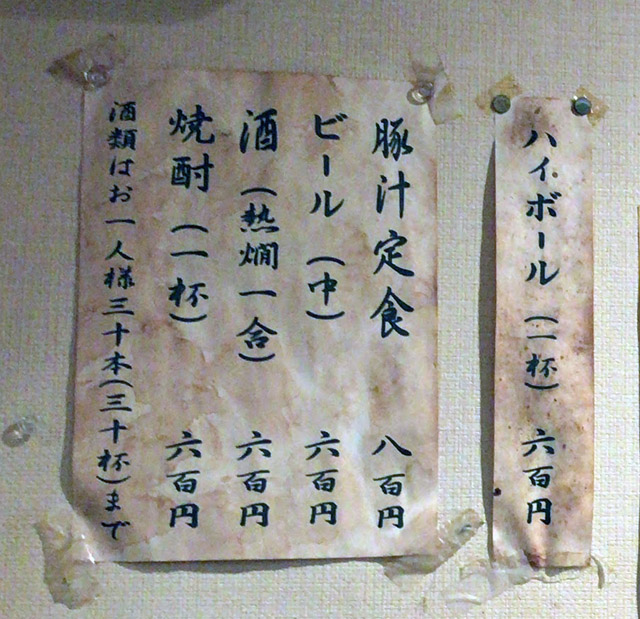 ハイボール（一杯） 六百円
豚汁定食 八百円
ビール（中） 六百円
酒（熱燗一合） 六百円
焼酎（一杯） 六百円
酒類はお一人様三十本（三十杯）まで